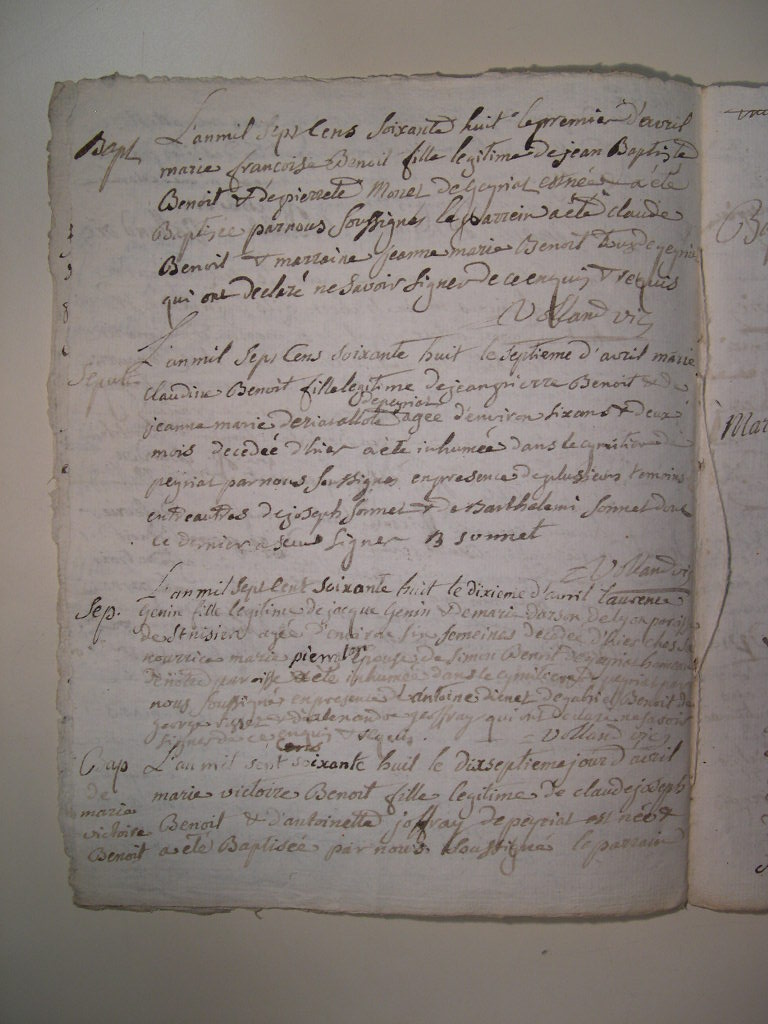 Bapt
L'an mil sept Cens soixante huit le premier d'avril
marie francoise Benoit fille legitime de jean Baptiste
Benoit & de pierrete Monet de peyriat est née & a été
Baptisée par nous soussigné le parrein a été claude
Benoit & marraine jeanne marie Benoit tous de peyriat
qui ont declaré ne savoir signer de ce enquis & requis
Volland vic
Sepult
L'an mil sept Cens soixante huit le septieme d'avril marie
claudine Benoit fille legitime de jean pierre Benoit & de
de peyriat
jeanne marie agée d'environ six ans & deux
mois decedée d'hier a été inhumée dans le cymitiere de
peyriat par nous soussigné en presence de plusieurs temoins
entre autres de joseph sonnet & de Barthelemi sonnet dont
ce dernier a seu signer B sonnet
Volland vic
Sep.
L'an mil sept Cent soixante huit le dixieme d'avril laurence
Genin fille legitime de jacque Genin & de marie de lyon paroisse
de St nisier agée d'environ six semeines decedée d'hier chez sa
nourrice marie epouse de Simon Benoit de peyriat
de notre paroisse a été inhumée dans le cymitiere de peyriat par
nous soussigné en presence d'antoine de gabriel Benoit de
george & d'alexandre joffray qui ont declaré ne savoir
signer de ce enquis & requis Volland vic
Cens
Bap
de
marie
victoire
Benoit
L'an mil sept soixante huit le dix septieme jour d'avril
marie victoire Benoit fille legitime de claude joseph
Benoit & d'antoinette joffray de peyriat est née &
a été Baptisée par nous soussigné le parrain